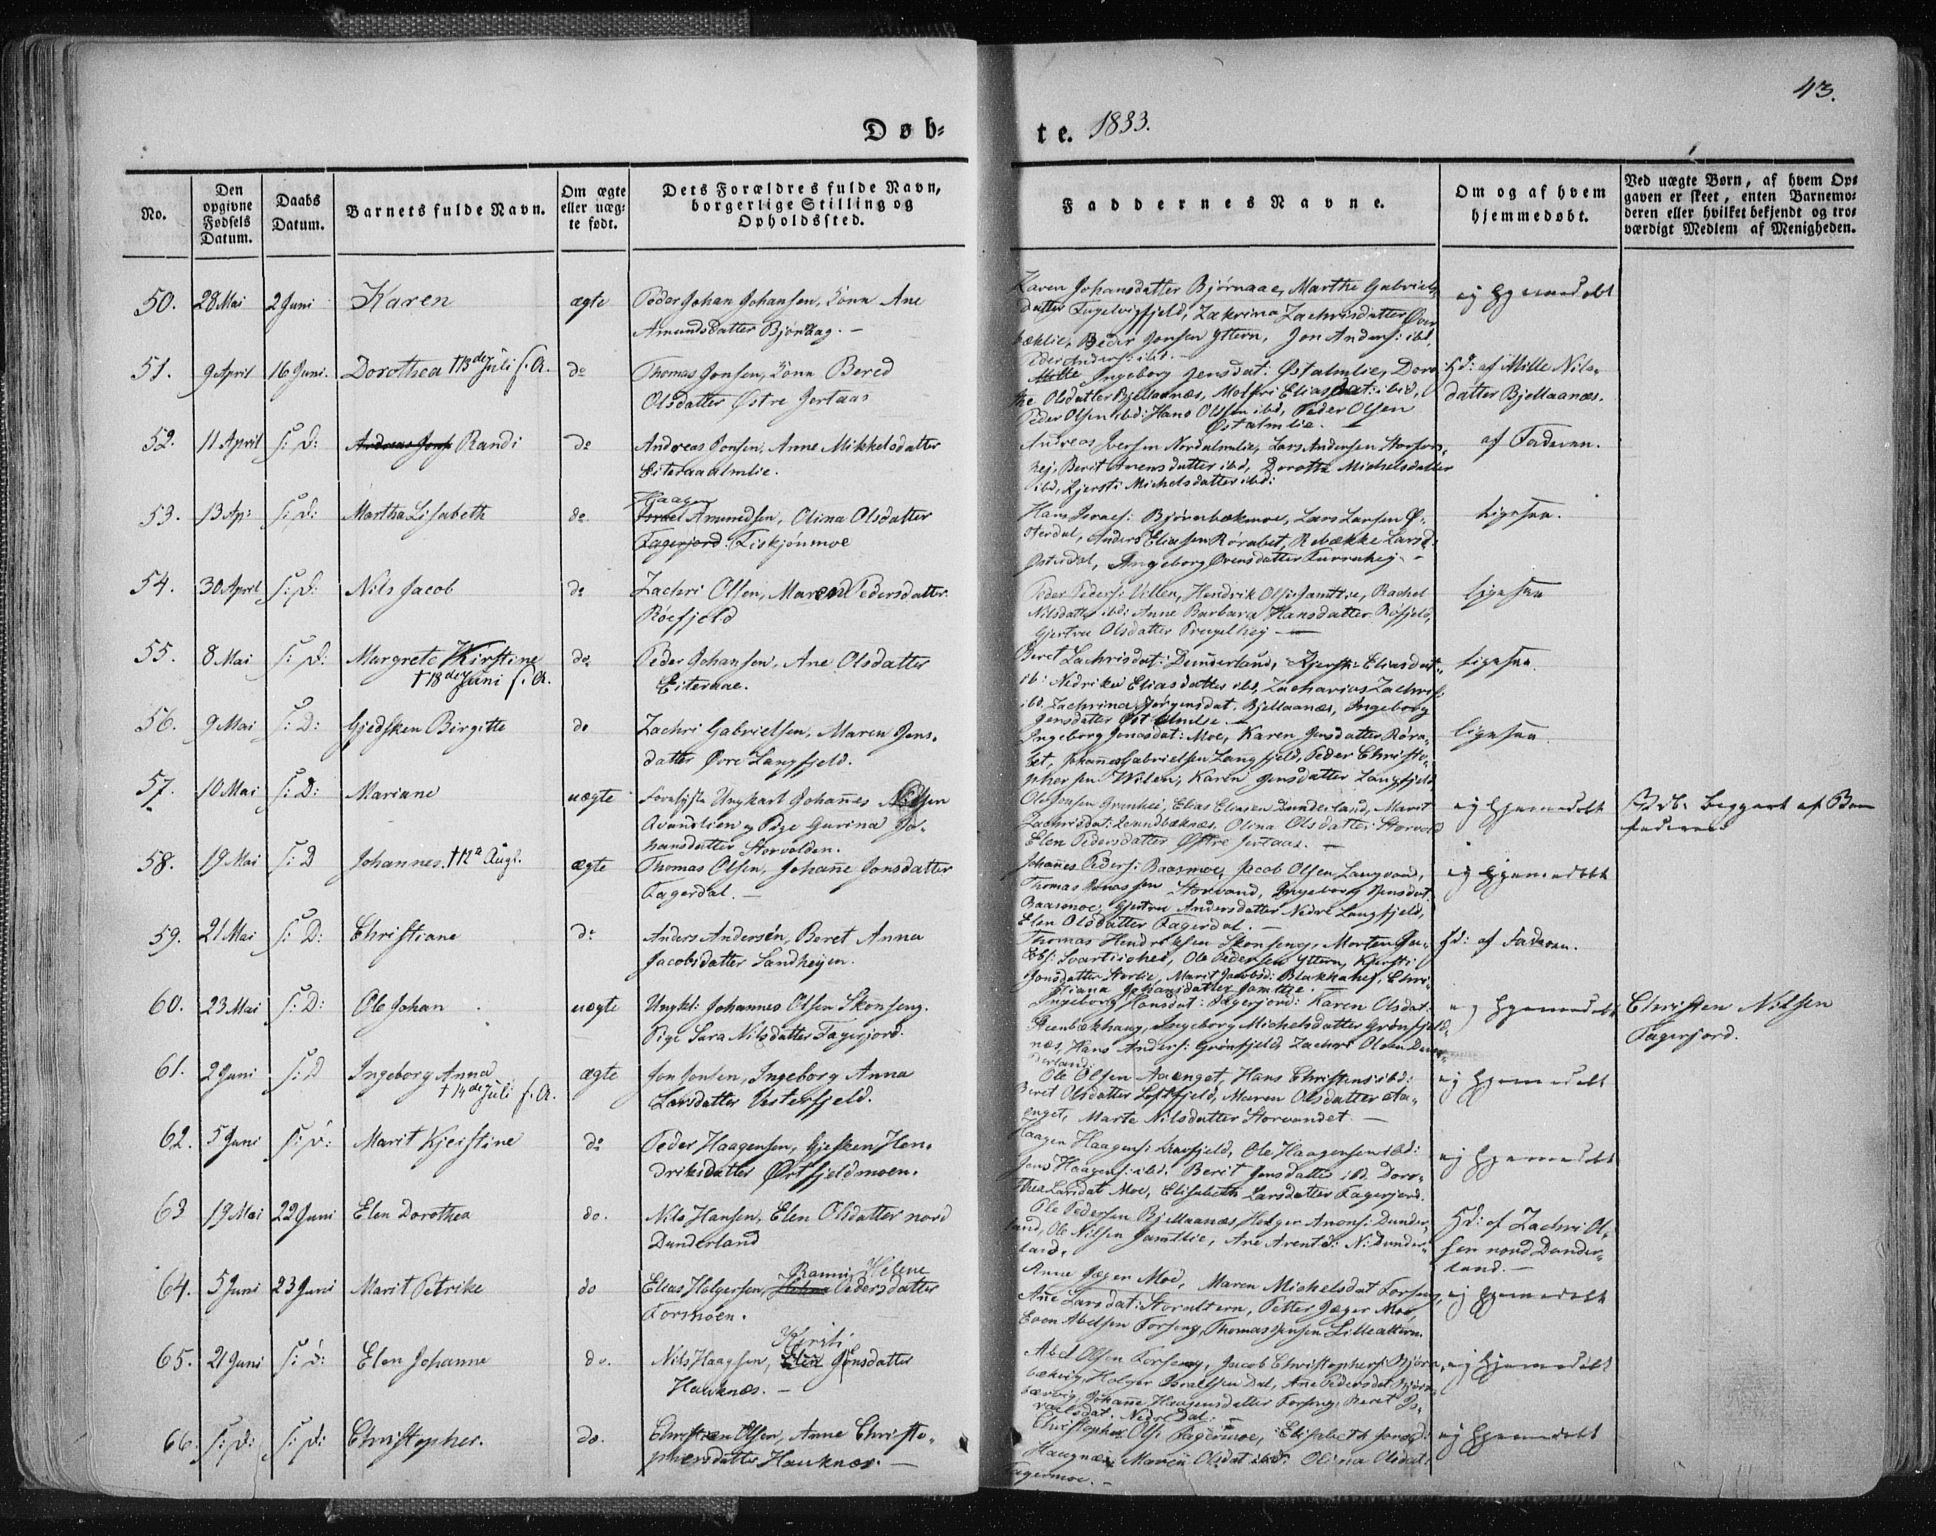 43.
Døb-
te. 1833.
No.
Den opgivne Fødsels Datum.
Daabs Datum.
Barnets fulde Navn.
Om ægte eller uægte født.
Dets Forældres fulde Navn, borgerlige Stilling og Opholdssted.
Faddernes Navne.
Om og af hvem hjemmedøbt.
Ved uægte Børn, af hvem Opgaven er skeet, enten Barnemoderen eller hvilket bekjendt og troværdigt Medlem af Menigheden.
50. 28 Mai 2 Juni Karen ægte Peder Johan Johansen, Kone Ane
Amundsdatter Bjørnaag. –
Karen Johansdatter Bjørnaae, Marthe Gabriels-
datter Zakrina Zachrisdatter Øver
Peder Jonsen Yttern, Jon Anders: ibd,
Peder Anders: ibd. –
ej hjemmedøbt
51. 9 April 16 Juni. Dorothea † 13de Juli s. A. do Thomas Jonsen, Kone Bered
Olsdatter Østre Jertaas
Ingeborg Jensdat: Østalmlie, Doro-
the Olsdatter Bjellaanæs, Eliasdat: ibid,
Peder Olsen ibd: Hans Olsen ibd, Peder Olsen
Østalmlie.
Hd: af Mille Nils-
datter Bjellaanæs.
52. 11 April s: D: Randi do Andreas Jonsen, Anne Mikkelsdatter
Eiteraaalmlie.
Andreas Iversen Nordalmlie, Lars Andersen Storfors-
hej, Berit Arensdatter ibd, Dorothe Michelsdatter
ibd, Kjersti Michelsdatter ibd:
af Faderen.
53. 13 Ap: s: D: Martha Lisabeth do. Haagen
Amundsen, Olina Olsdatter
Fagerjord: Fiskjønmoe
Hans Israels: Bjørnbækmoe, Lars Larsen Ø-
sterdal, Anders Eliasen Rørabet, Rebække Larsd:
Østerdal, Ingeborg
ligesaa.
54. 30 April s: D: Nils Jacob do Zachri Olsen, Maren Pedersdatter
Røefjeld
Peder Peders: Villen, Hendrik Ols: Jamtlie, Rachel
Nilsdatter ibd: Anne Barbara Hansdatter Røfjeld,
Gjertru Olsdatter
ligesaa
55. 8 Mai s: D: Margrete Kirstine do. Peder Johansen, Ane Olsdatter
† 18de Juni s. A. Eiteraae.
Beret Zachrisdat: Dunderland, Kjersti: Eliasdat:
ib: Nedrike Eliasdatter ibd, Zacharias Zachris:
ibd, Zachrina Jørgensdat. Bjellaanæs, Ingeborg
Jensdatter Østalmlie –
ligesaa.
56. 9 Mai s: D: Gjedsken Birgitte do Zachri Gabrielsen, Maren Jens-
datter Øvre Langfjeld.
Ingeborg Jonasdat: Moe, Karen Jensdatter Røra-
bet, Johannes Gabrielsen Langfjeld, Peder Christo-
phersen Wilen, Karen Jensdatter Langfjeld
ligesaa.
57. 10 Mai s: D: Mariane uægte Ungkarl Johannes Nilsen
Pige Gurina Jo-
hansdatter Storvolden.
Ole Jonsen Grønhei, Elias Eliasen Dunderland, Marit
Zachrisdat: Olina Olsdatter Storvold
Elen Pedersdatter Østre Jertaas. –
ej hjemmedøbt
beggert af Bar
fadere
58. 19 Mai s: D Johannes. † 12te Augt. ægte Thomas Olsen, Johane Jonsdatter
Fagerdal. –
Johannes Peders: Baasmoe, Jacob Olsen Langvand,
Thomas Storvand, Ingeborg Jensdat.
Baasmoe, Gjertru Andersdatter Nedre Langfjeld,
Elen Olsdatter Fagerdal. –
ej hjemmedøbt
59. 21 Mai s: D: Christiane do Anders Andersen, Beret Anna
Jacobsdatter Sandhejen.
Thomas Hendriksen Skonseng, Morten
Svartishei, Ole Pedersen Yttern, Kjersti
Jonsdatter Storlie, Marit Jacobsd: Chri-
stiana Johansdatter Jamtlie. –
Hd: af Faderen.
60. 23 Mai s: D: Ole Johan uægte Ungk: Johannes Olsen Skonseng.
Pige Sara Nilsdatter Fagerjord.
Ingeborg Hansdat: Fagerjord: Karen Olsdat.
Steenbækhaug, Ingeborg Michelsdatter Grønfjeld-
næs, Hans Anders: Grønfjeld, Zachri Olsen Dun-
derland.
ej hjemmedøbt
Christen Nilsen
Fagerjord.
61. 2 Juni s: D Ingeborg Anna ægte Jon Jonsen, Ingeborg Anna
† 14de Juli s. A. Larsdatter Vesterfjeld.
Ole Olsen Aaenget, Hans Christens: ibd:
Beret Olsdatter Maren Olsdatter Aa-
enget, Marte Nilsdatter Storvandet –
ej hjemmedøbt
62. 5 Juni s: D: Marit Kjerstine do Peder Haagensen, Gjesken Hen-
driksdatter Ørtfjeldmoen.
Haagen Haagens: Ole Haagensen ibd:
Jens Haagens: ibd. Berit Jensdatter ibd. Doro-
thea Larsdat Moe, Elisabeth Larsdatter Fagerjord.
ej hjemmedøbt
63 19 Mai 22 Juni Elen Dorothea do. Nils Hansen, Elen Olsdatter nord
Dunderland
Ole Pedersen Bjellaanæs, Holger Arons: Dunder-
land, Ole Nilsen Jamtlie, Ane Arentsd: N: Dunder-
land,
Hd: af Zachri Ol-
sen nord Dunder-
land. –
64. 5 Juni 23 Juni Marit Petrike do Elias Holgersen, Ranni Helene Pedersdatter
Formoen.
Anne Jæger Moe, Maren Michelsdat Forseng,
Ane Larsdat: Storaltern, Petter Jæger Moe,
Even Abelsen Forseng, Thomas Jensen Lillealtern.
ej hjemmedøbt
65. 21 Juni s: D: Elen Johanne do. Nils Haagsen, Kirsti Jonsdatter
Hauknæs. –
Abel Olsen Forseng, Jacob Christophers: Bjørn-
bækvig, Holger Israelsen Dal, Ane Pedersdat: Bjørn-
bækvig, Johane Haagensdatter Forseng, Beret Is-
raelsdat. Nedre Dal. –
ej hjemmedøbt
66. s: D: s: D: Christopher. do. Christian Olsen, Anne Christo-
phersdatter Hauknæs. –
Christopher Ols: Fagermoe, Elisabeth
Haugnæs Maren Olsdat ibd. Olina Olsdat:
Fagermoe. –
ej hjemmedøbt